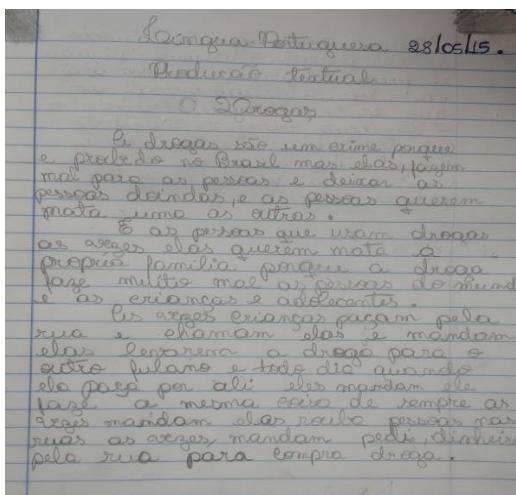 Língua Portuguesa 28/05/15.
Producão textual
O Drogas
As drogas são um crime porque
e proibido no Brazil mas elas, fazem
mal para as pessoas e deixar as
pessoas doindas, e as pessoas querem
mata uma as outras.
E as pessoas que usam drogas
as vezes elas querem mata a
propria família porque a droga
faze mulito mal as pessoas do mund
e as crianças e adolecentes.
As vezes crianças paçam pela
rua e chamam elas e mandam
elas levarem a droga para o
outro fulano e todo dia quando
ela paça por ali eles mandam ele
faze a mesma coisa de sempre as
vezes mandam elas rouba pessoas nas
ruas as vezes, mandam pedi, dinheir
pela rua para compra droga.